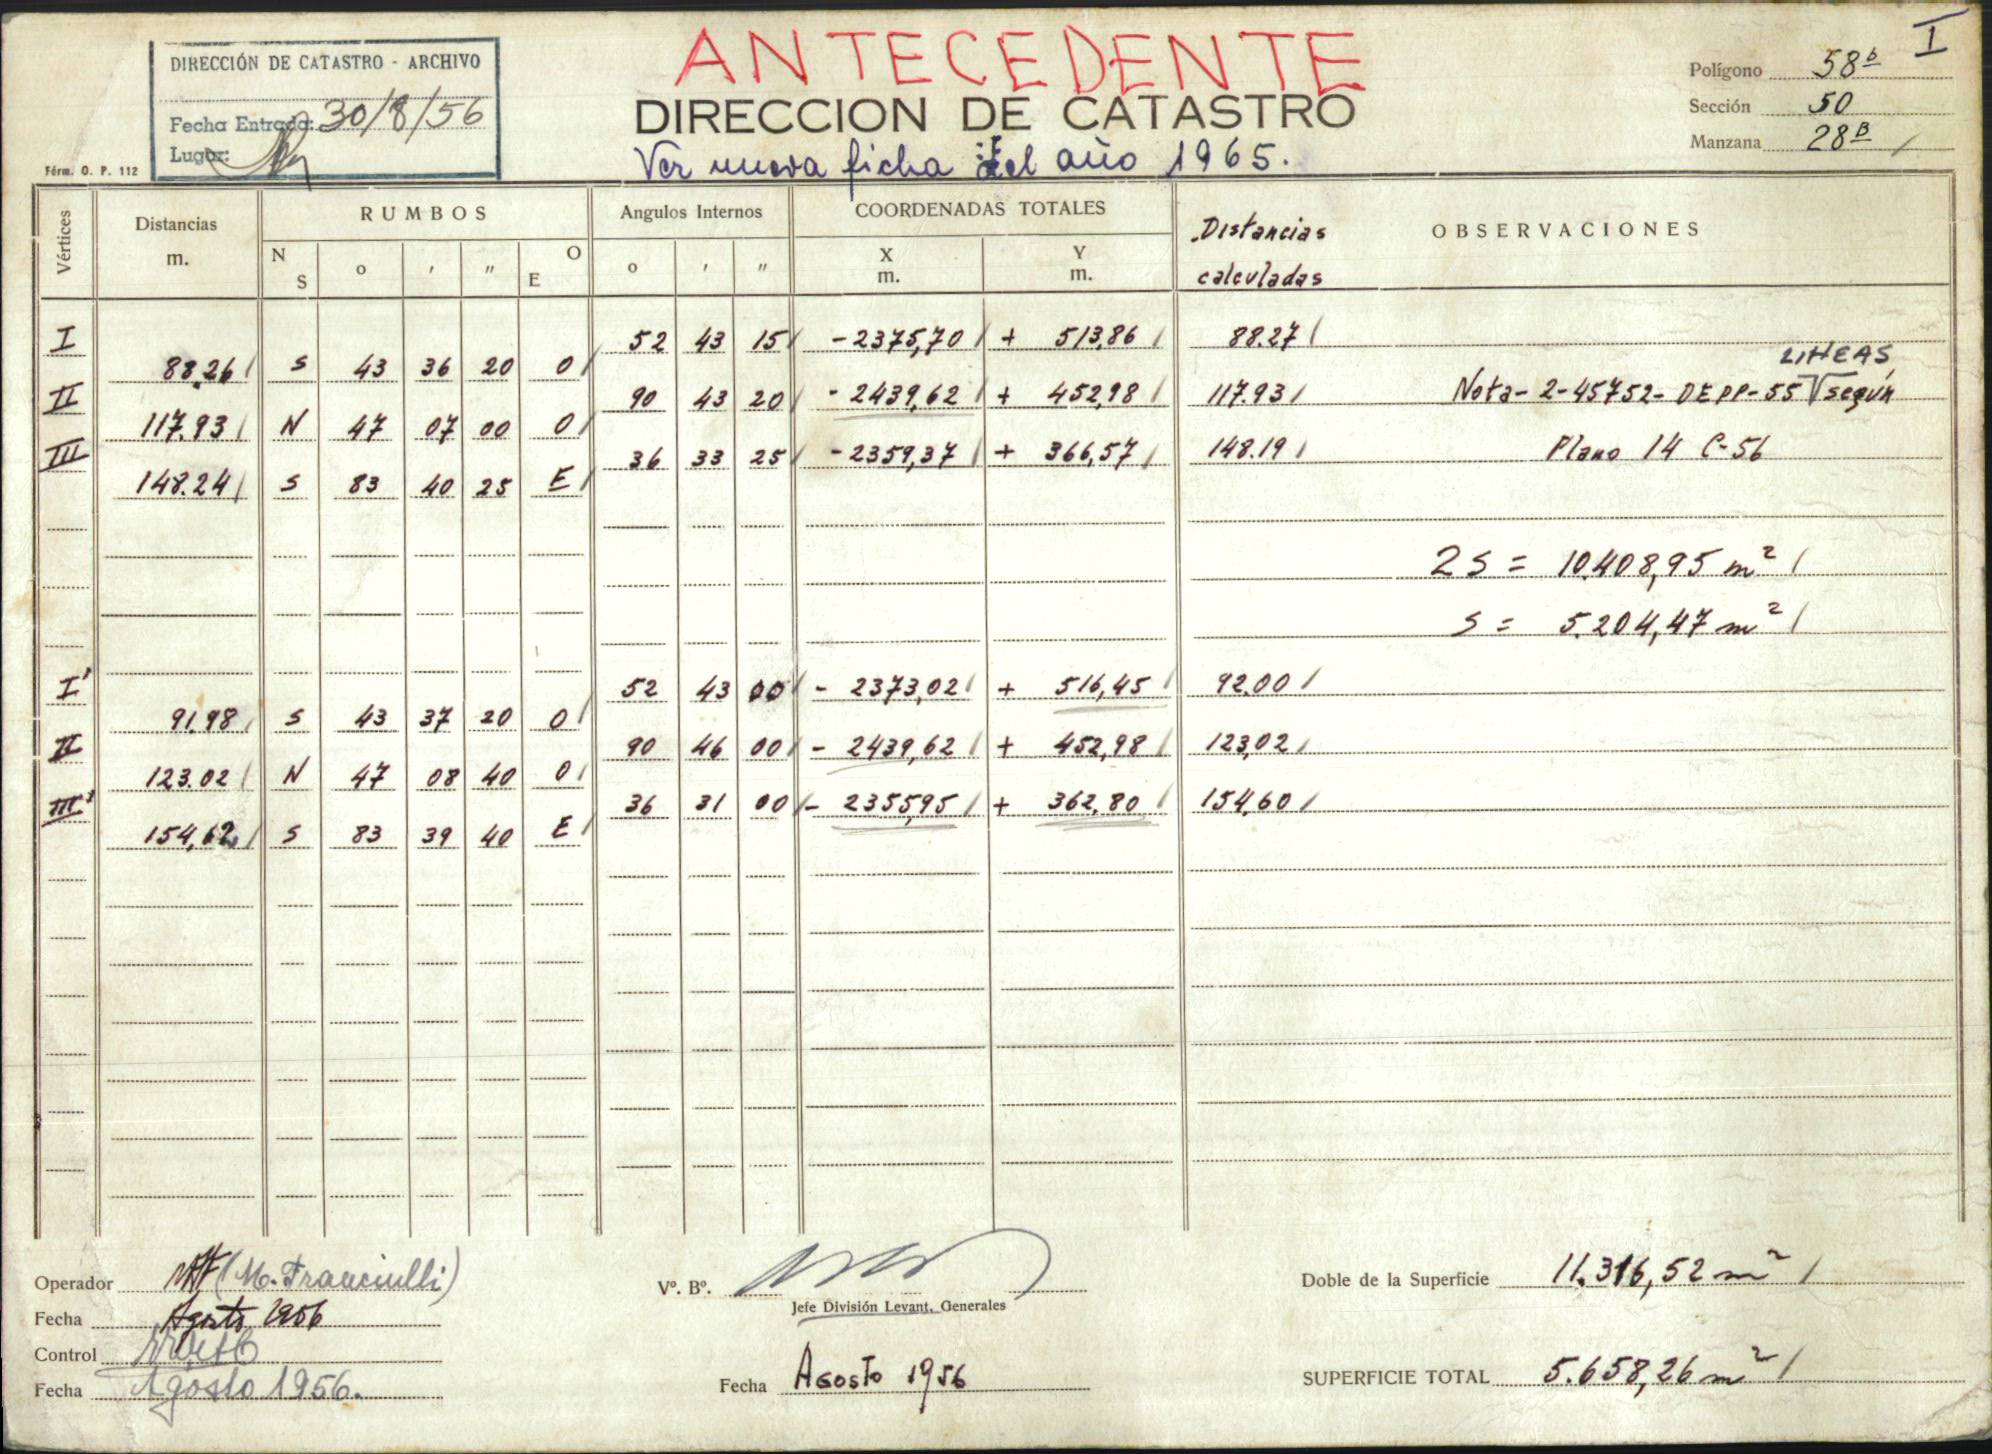 ANTECEDENTE
I
DIRECCIÓN DE CATASTRO - ARCHIVO
Fecha Entrada: 30/8/56
Lugar:
Férm. O. P. 112
DIRECCION DE CATASTRO
Ver nueva ficha del año 1965.
Polígono 58b
Sección 50
Manzana 28B /
Vértices Distancias m. RUMBOS Angulos Internos COORDENADAS TOTALES Distancias calculadas OBSERVACIONES
N S o , " O E o , " X m. Y m.
I 52 43 15 / -2375,70 / + 513,86 / 88.27 /
88.26 / S 43 36 20 O /
LINEAS
II 90 43 20 / -2439,62 / + 452,98 / 117.93 / Nota-2-45752-DEPP-55 según
117.93 / N 47 07 00 O /
III 36 33 25 / -2359,37 / + 366,57 / 148.19 / Plano 14 C-56
148.24 / S 83 40 25 E /
2S = 10.408,95 m² /
S = 5.204,47 m² /
I' 52 43 00 / - 2373,02 / + 516,45 / 92.00 /
91.98 / S 43 37 20 O /
II 90 46 00 / - 2439,62 / + 452,98 / 123,02 /
123.02 / N 47 08 40 O /
III' 36 31 00 / - 2355,95 / + 362,80 / 154,60 /
154,62 / S 83 39 40 E /
Operador (M. Franciulli)
Fecha Agosto 1956
Control
Fecha Agosto 1956.
Vº. Bº.
Jefe División Levant. Generales
Fecha Agosto 1956
Doble de la Superficie 11.316,52 m² /
SUPERFICIE TOTAL 5.658,26 m² /